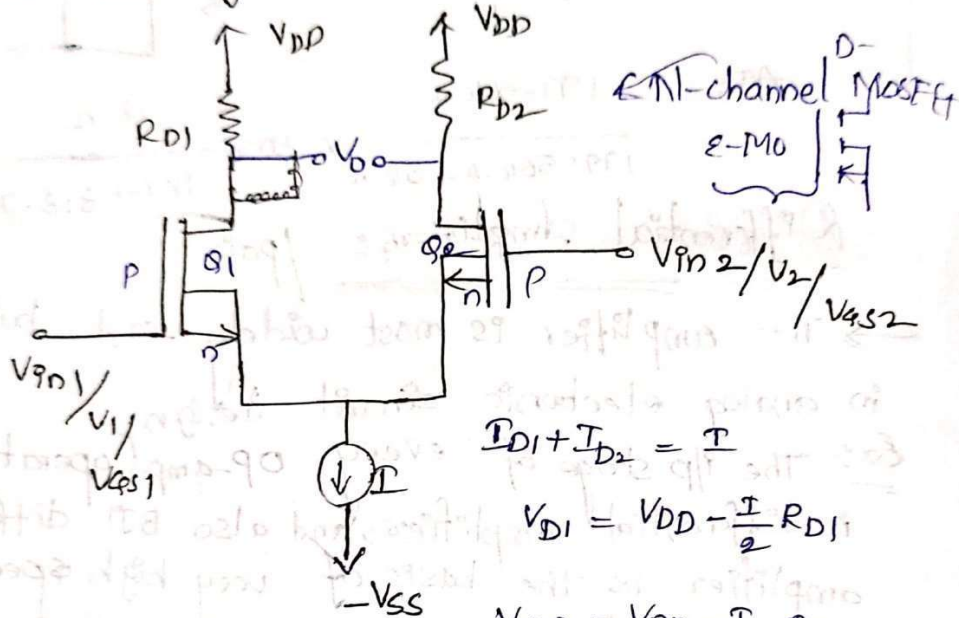 VDD
VDD
RD1
RD2
Vo
N-channel
D-
MOSFET
E-MO
P
Q1
n
Q2
n
P
Vin 2/V2/
VGS2
Vin1/
V1/
VGS1
I
-VSS
ID1 + ID2 = I
VD1 = VDD - I/2 RD1